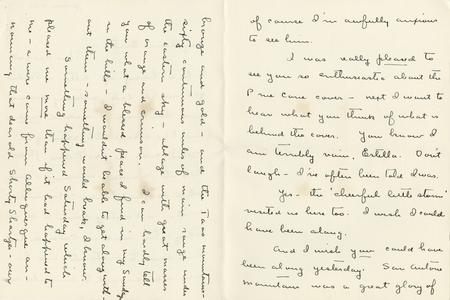 of course I'm awfully anxious
to see him.
I was really pleased to
see you so enthusiastic about the
Pine Cone cover – next I want to
hear what you think of what is
behind the cover. You know I
am terribly vain, Estella. Don't
laugh – I've often been told I was.
Yes – the "cheerful little storm"
visited us here too. I wish I could
have been along.
And I wish you could have
been along yesterday. San Antone
mountain was a great glory of
bronze and gold – and the Taos mountains –
sixty continuous miles of main range under
the eastern sky – ablaze with great masses
of orange and crimson. I can hardly tell
you what a blessed peace I found in my Sunday
in the hills – I wouldn't be able to get along with-
out them – something would break, I know.
Something happened Saturday which
pleased me more than if it had happened to
me – a wire came from Albuquerque an-
nouncing that dear old Shorty Sharpe – our